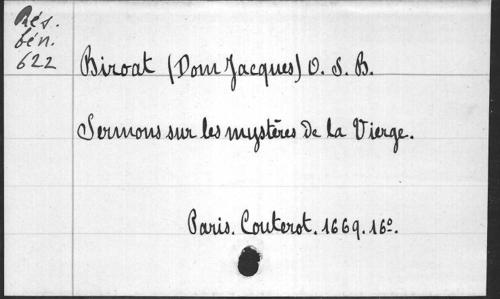 Rés.
bén.
622
Biroat (Dom Jacques) O. S. B.
Sermons sur les mystères de la Vierge.
Paris. Couterot. 1669. 16º.